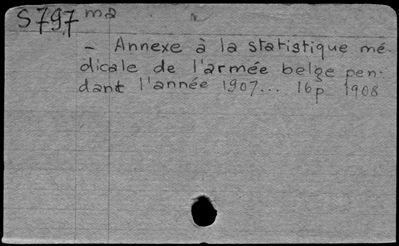 S797 ma
– Annexe à la statistique mé-
dicale de l'armée belge pen-
dant l'année 1907... 16p 1908